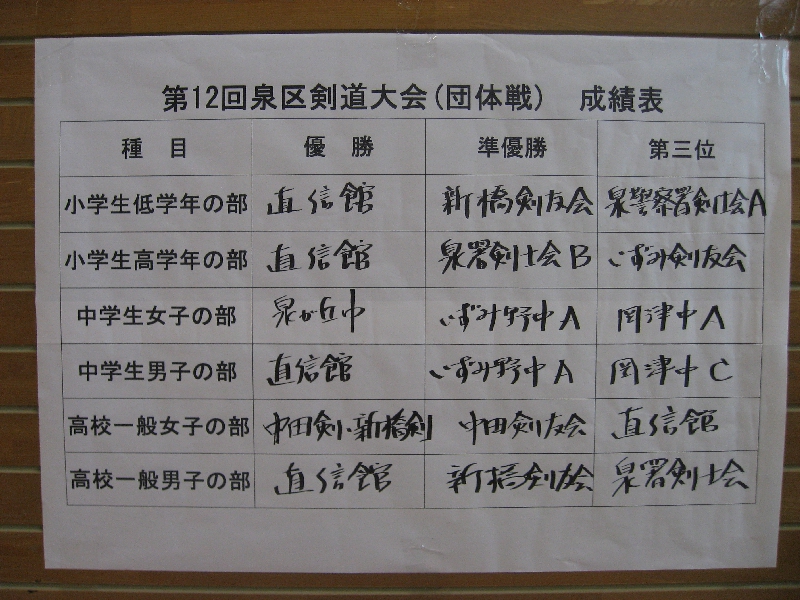 第12回泉区剣道大会（団体戦）　成績表
種　目　優　勝　準優勝　第三位
小学生低学年の部　直信館　新橋剣友会　泉警察署剣士会A
小学生高学年の部　直信館　泉署剣士会B　いずみ剣友会
中学生女子の部　泉が丘中　いずみ野中A　岡津中A
中学生男子の部　直信館　いずみ野中A　岡津中C
高校一般女子の部　中田剣・新橋剣　中田剣友会　直信館
高校一般男子の部　直信館　新橋剣友会　泉署剣士会